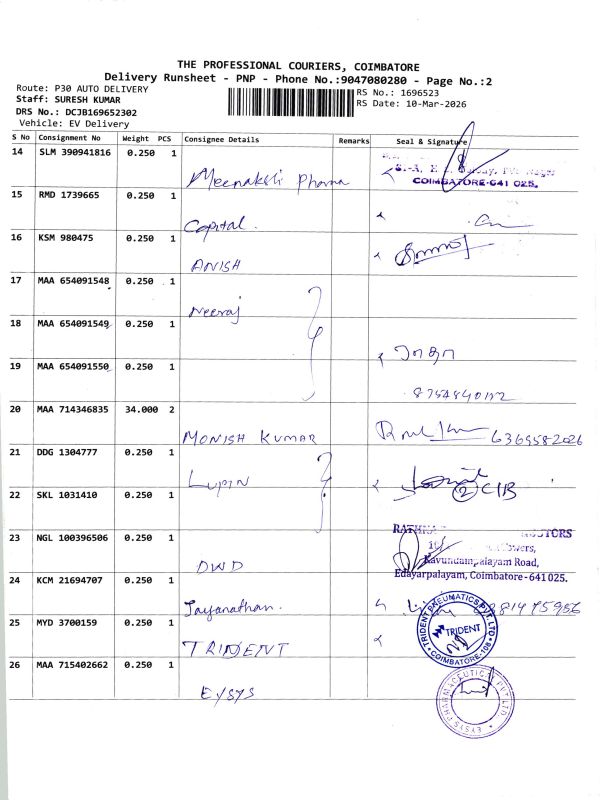 THE PROFESSIONAL COURIERS, COIMBATORE
Delivery Runsheet - PNP - Phone No.:9047080280 - Page No.:2
Route: P30 AUTO DELIVERY
Staff: SURESH KUMAR
DRS No.: DCJB169652302
Vehicle: EV Delivery
RS No.: 1696523
RS Date: 10-Mar-2026
S No Consignment No Weight PCS Consignee Details Remarks Seal & Signature
14 SLM 390941816 0.250 1 Meenakshi Pharma
COIMBATORE-641 025.
15 RMD 1739665 0.250 1 Capital.
16 KSM 980475 0.250 1 ANISH
17 MAA 654091548 0.250 1 Neeraj
18 MAA 654091549 0.250 1
19 MAA 654091550 0.250 1
8754840112
20 MAA 714346835 34.000 2 MONISH KUMAR
6369582026
21 DDG 1304777 0.250 1 LUPIN
22 SKL 1031410 0.250 1
23 NGL 100396506 0.250 1 DWD
Kavundampalayam Road,
Edayarpalayam, Coimbatore-641025.
24 KCM 21694707 0.250 1 Jayanathan.
25 MYD 3700159 0.250 1 TRIDENT
TRIDENT PNEUMATICS PVT. LTD
TRIDENT
COIMBATORE-108
26 MAA 715402662 0.250 1 EYSYS
EYSYS PHARMACEUTICAL PVT LTD